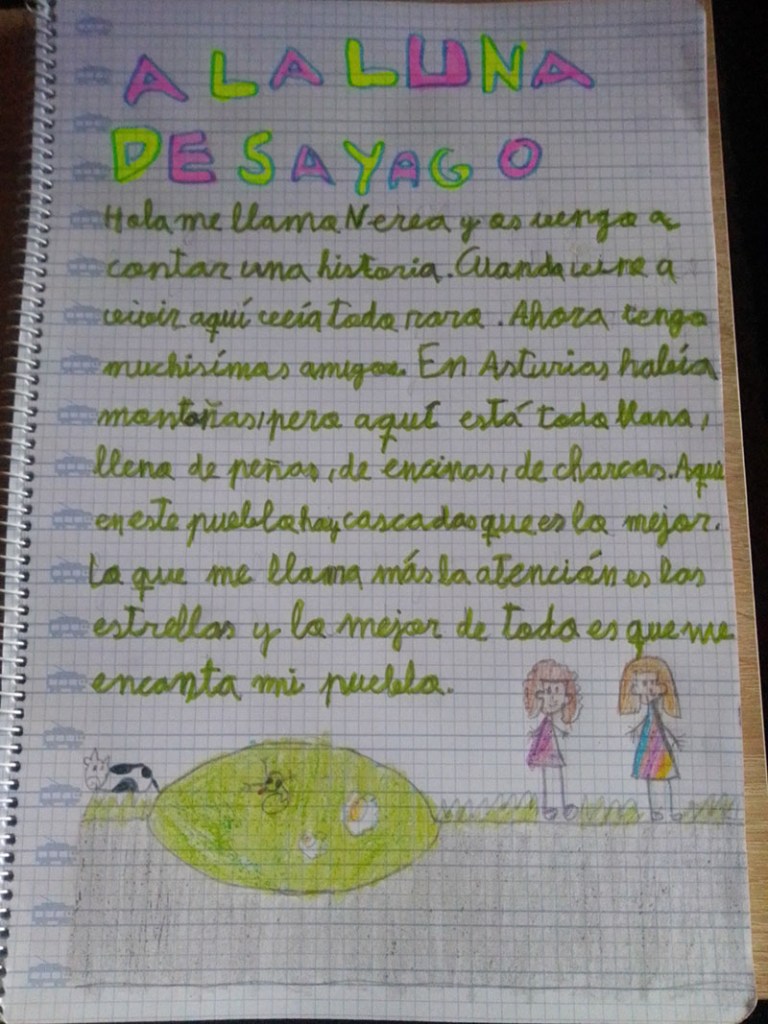 A LA LUNA
DE SAYAGO
Hola me llamo Nerea y os vengo a
contar una historia. Cuando vine a
vivir aquí veía todo raro. Ahora tengo
muchisímos amigos. En Asturias había
montañas, pero aquí está todo llano,
lleno de peñas, de encinas, de charcas. Aqui
en este pueblo hay cascadas que es lo mejor.
Lo que me llama más la atención es las
estrellas y lo mejor de todo es que me
encanta mi pueblo.